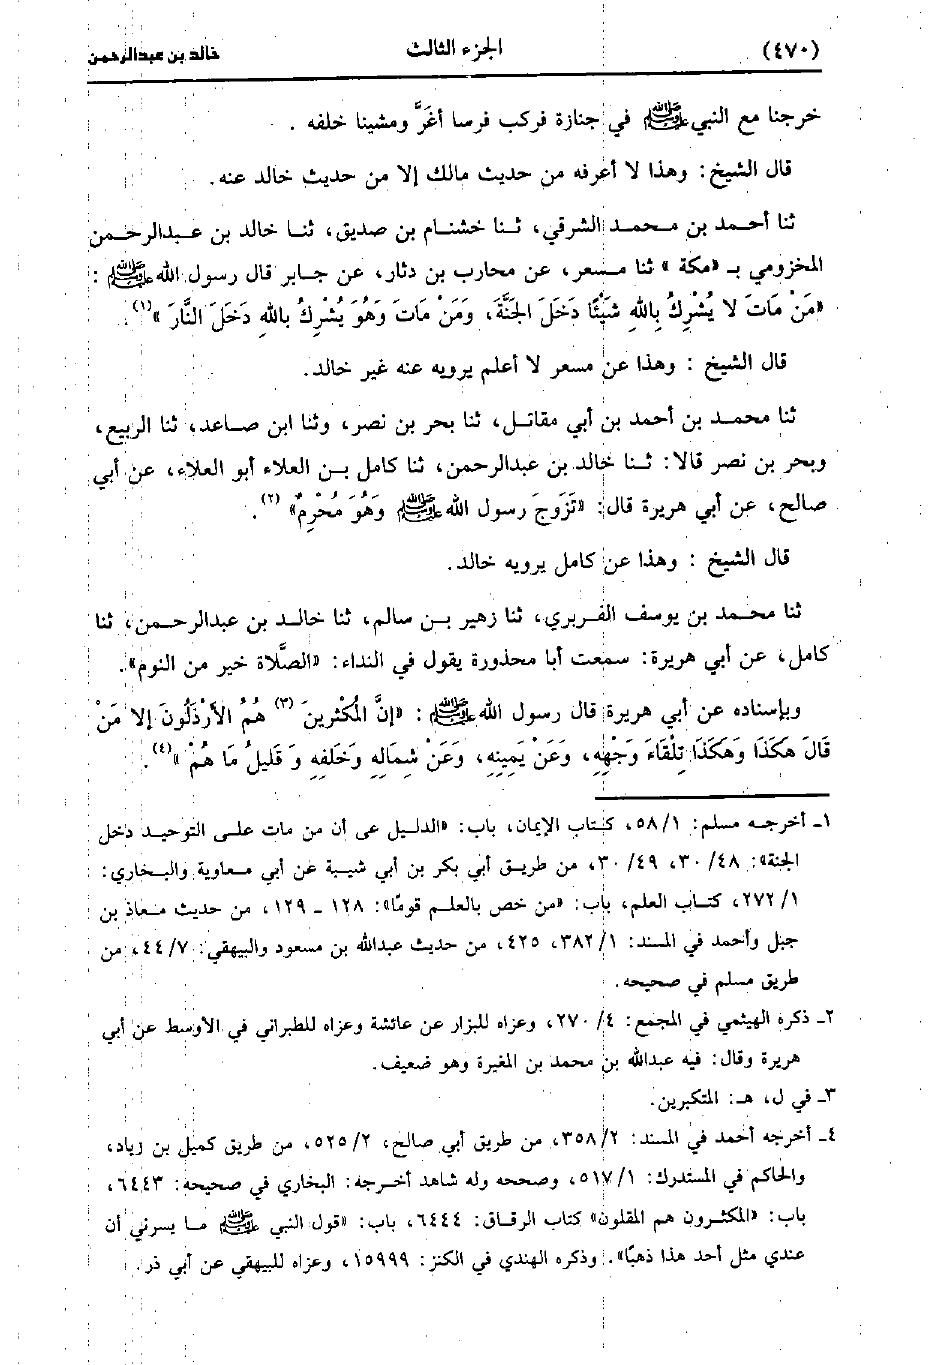 (٤٧٠) الجزء الثالث خالد بن عبدالرحمن
خرجنا مع النبي ﷺ في جنازة فركب فرسا أغَرَّ ومشينا خلفه .
قال الشيخ: وهذا لا أعرفه من حديث مالك إلا من حديث خالد عنه.
ثنا أحمد بن محمد الشرقي، ثنا خشنام بن صديق، ثنا خالد بن عبدالرحمن
المخزومي بـ «مكة» ثنا مسعر، عن محارب بن دثار، عن جابر قال رسول الله ﷺ :
«مَنْ مَاتَ لا يُشْرِكُ بِاللهِ شَيْئًا دَخَلَ الجَنَّةَ، وَمَنْ مَاتَ وَهُوَ يُشْرِكُ بِاللهِ دَخَلَ النَّارَ»(١).
قال الشيخ : وهذا عن مسعر لا أعلم يرويه عنه غير خالد.
ثنا محمد بن أحمد بن أبي مقاتل، ثنا بحر بن نصر، وثنا ابن صاعد، ثنا الربيع،
وبحر بن نصر قالا: ثنا خالد بن عبدالرحمن، ثنا كامل بن العلاء أبو العلاء، عن أبي
صالح، عن أبي هريرة قال: «تَزَوجَ رسول الله ﷺ وَهُوَ مُحْرِمٌ» (٢).
قال الشيخ : وهذا عن كامل يرويه خالد.
ثنا محمد بن يوسف الفربري، ثنا زهير بن سالم، ثنا خالد بن عبدالرحمن، ثنا
كامل، عن أبي هريرة: سمعت أبا محذورة يقول في النداء: «الصَّلاة خير من النوم».
وبإسناده عن أبي هريرة قال رسول الله ﷺ : «إنَّ المُكْثِرينَ (٣) هُمُ الأَرْذَلُونَ إلا مَنْ
قَالَ هَكَذَا وَهَكَذَا تِلْقَاءَ وَجْهِهِ، وَعَنْ يَمِينِهِ، وَعَنْ شِمَالِهِ وَخَلفِهِ وَ قَلِيلُ مَا هُمْ»(٤).
١ـ أخرجه مسلم: ١/ ٥٨، كتاب الإيمان، باب: «الدليل عى أن من مات على التوحيد دخل
الجنة»: ٤٨/ ٣٠، ٤٩/ ٣٠، من طريق أبي بكر بن أبي شيبة عن أبي معاوية والبخاري:
١/ ٢٧٢، كتاب العلم، باب: «من خص بالعلم قومًا»: ١٢٨ ـ ١٢٩، من حديث معاذ بن
جبل وأحمد في المسند: ١/ ٣٨٢، ٤٢٥، من حديث عبدالله بن مسعود والبيهقي: ٧/ ٤٤، من
طريق مسلم في صحيحه.
٢ـ ذكره الهيثمي في المجمع: ٤/ ٢٧٠، وعزاه للبزار عن عائشة وعزاه للطبراني في الأوسط عن أبي
هريرة وقال: فيه عبدالله بن محمد بن المغيرة وهو ضعيف.
٣ـ في ل، هـ: المتكبرين.
٤ـ أخرجه أحمد في المسند: ٢/ ٣٥٨، من طريق أبي صالح، ٢/ ٥٢٥، من طريق كميل بن زياد،
والحاكم في المستدرك: ١/ ٥١٧، وصححه وله شاهد أخرجه: البخاري في صحيحه: ٦٤٤٣،
باب: «المكثرون هم المقلون» كتاب الرقاق: ٦٤٤٤، باب: «قول النبي ﷺ ما يسرني أن
عندي مثل أحد هذا ذهبًا». وذكره الهندي في الكنز: ١٥٩٩٩، وعزاه للبيهقي عن أبي ذر.